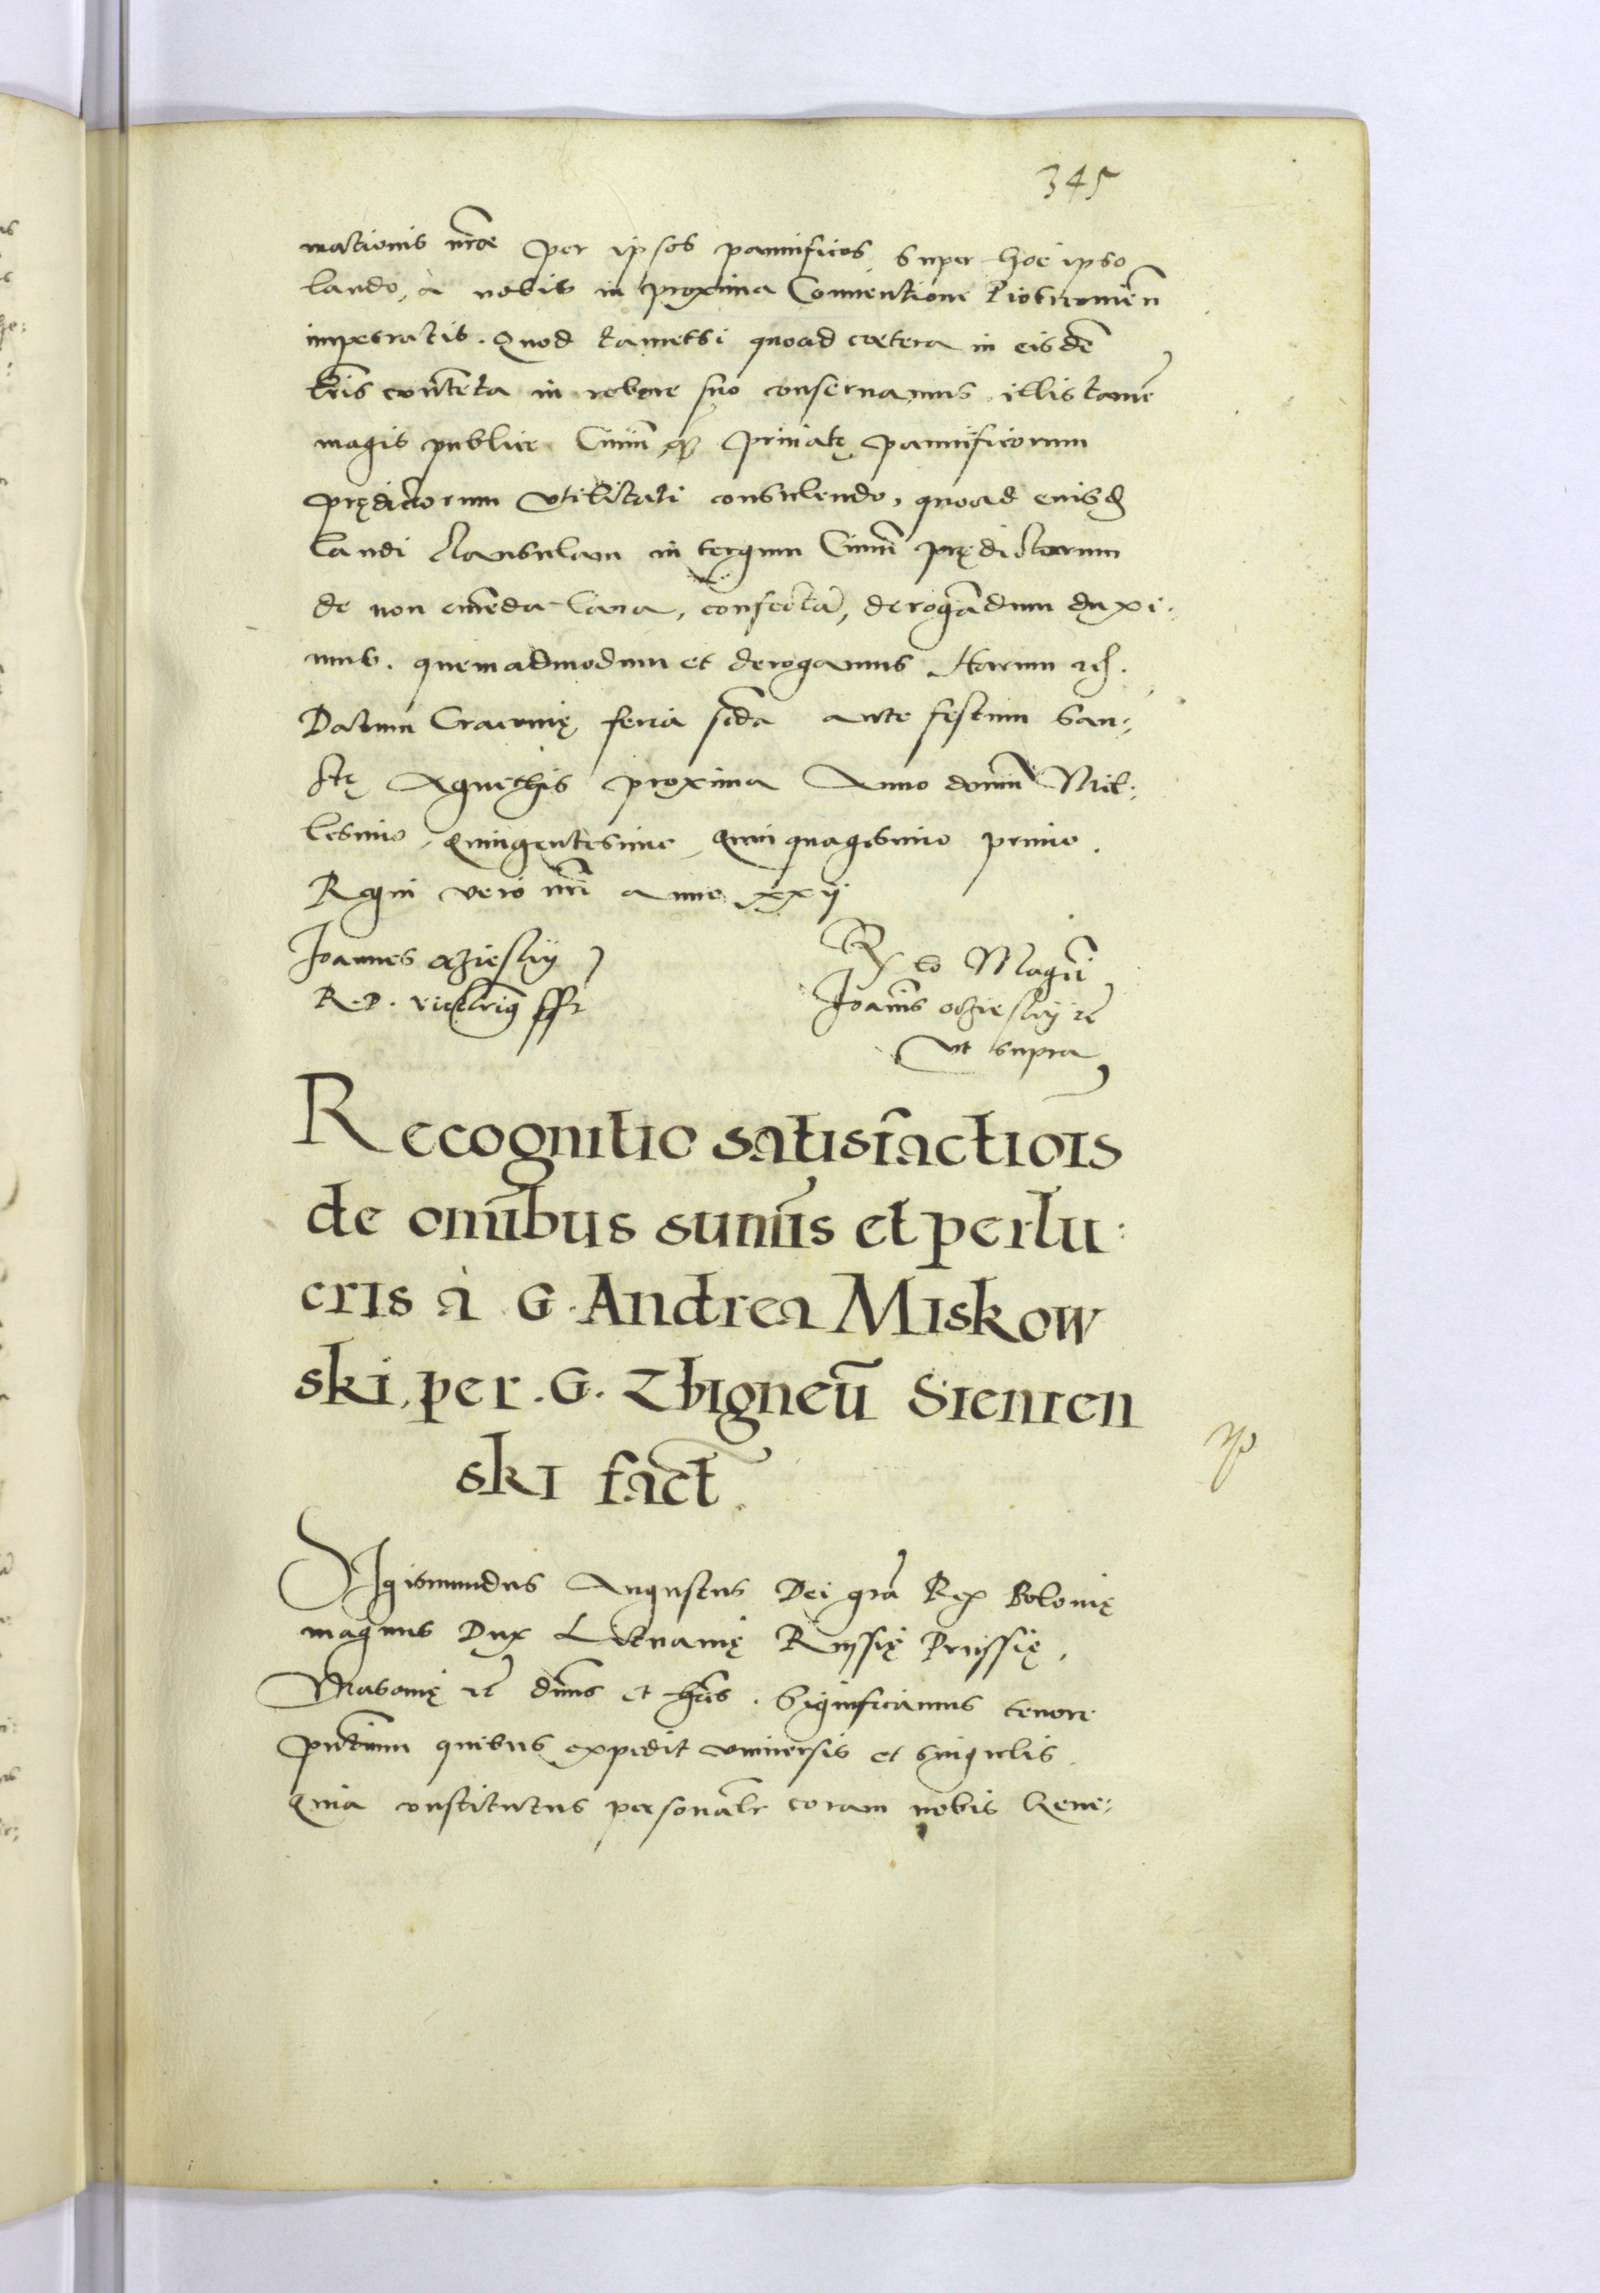 345
mationis nr̃ae per ipsos pannifices super hoc ipso
laudo, à nobis in proxima Conuentione Piotrcouien̄
impetratis. Quod tametsi quoad cætera in eisdē
lr̃is contēta in robore suo conseruamus, illis tamē
magis publice Ciuiū, quā priuatę pannificorum
prędictorum vtilitati consulendo, quoad eiusd
laudi clausulam in tergum Ciuiū prędictorum
de non emēda lana, confectā, derogādum duxi:
mus. quemadmodum et derogamus. Harum
Datum Cracouię feria scđa ante festum San:
ctę Agnethis proxima Anno domini Mil:
lesimo, Quingentesimo, Quinquagesimo primo.
Regni vero nr̃i anno xxij
Joannes oczieskÿ
R. P. vicecancłrius sst
Rō Magci
Joannis oczieskÿ rc̄
vt supra
Recognitio satisfactiōis
de omībus sumīs et perlu:
cris à G. Andrea Miskow
ski, per. G. Zbigneū Sienien
ski fact
Sigismundus Augustus Dei grã Rex Polonię
magnus Dux Lituanię Russię Prussię,
Masouię rc̄ dñus et hęs. Significamus tenore
pñtium quibus expedit vniuersis et singulis.
Quia constitutus personalr coram nobis Gene: